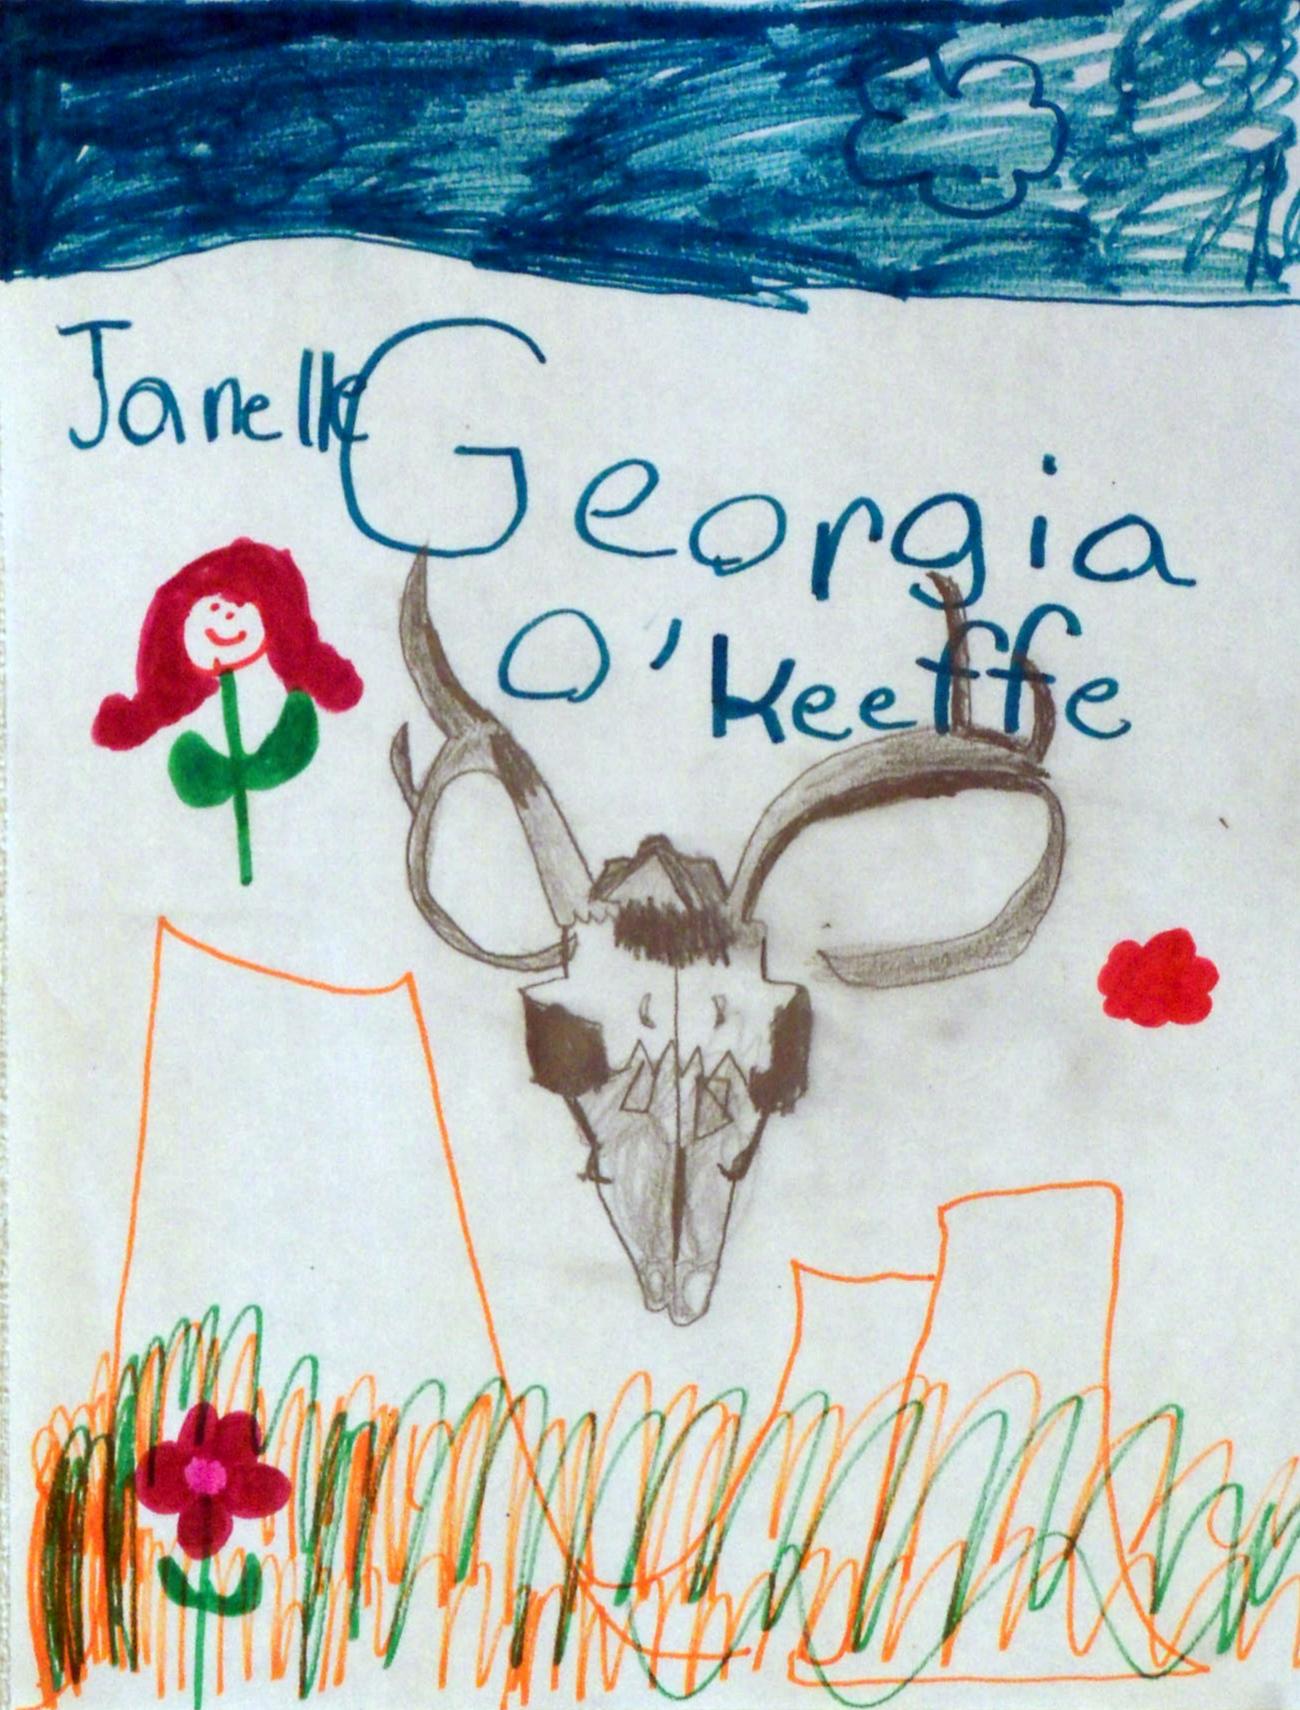 Janelle
Georgia
O'Keeffe